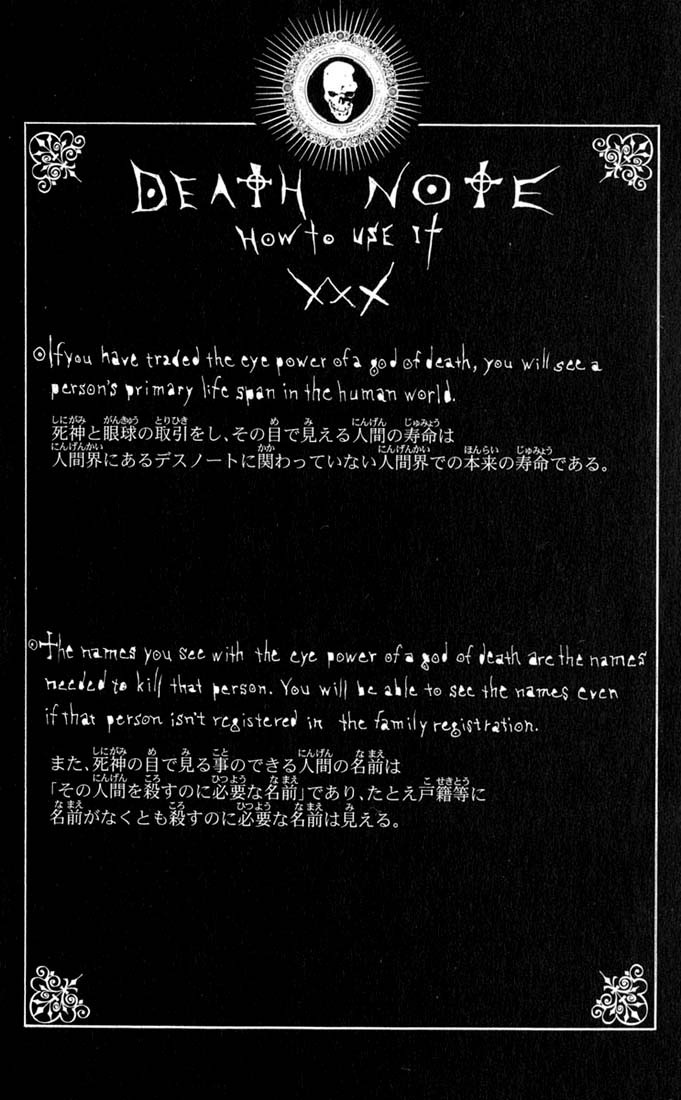 DEATH NOTE
HOW to USE It
XXX
If you have traded the eye power of a god of death, you will see a
person's primary life span in the human world.
死神と眼球の取引をし、その目で見える人間の寿命は
人間界にあるデスノートに関わっていない人間界での本来の寿命である。
The names you see with the eye power of a god of death are the names
needed to kill that person. You will be able to see the names even
if that person isn't registered in the family registration.
また、死神の目で見る事のできる人間の名前は
「その人間を殺すのに必要な名前」であり、たとえ戸籍等に
名前がなくとも殺すのに必要な名前は見える。